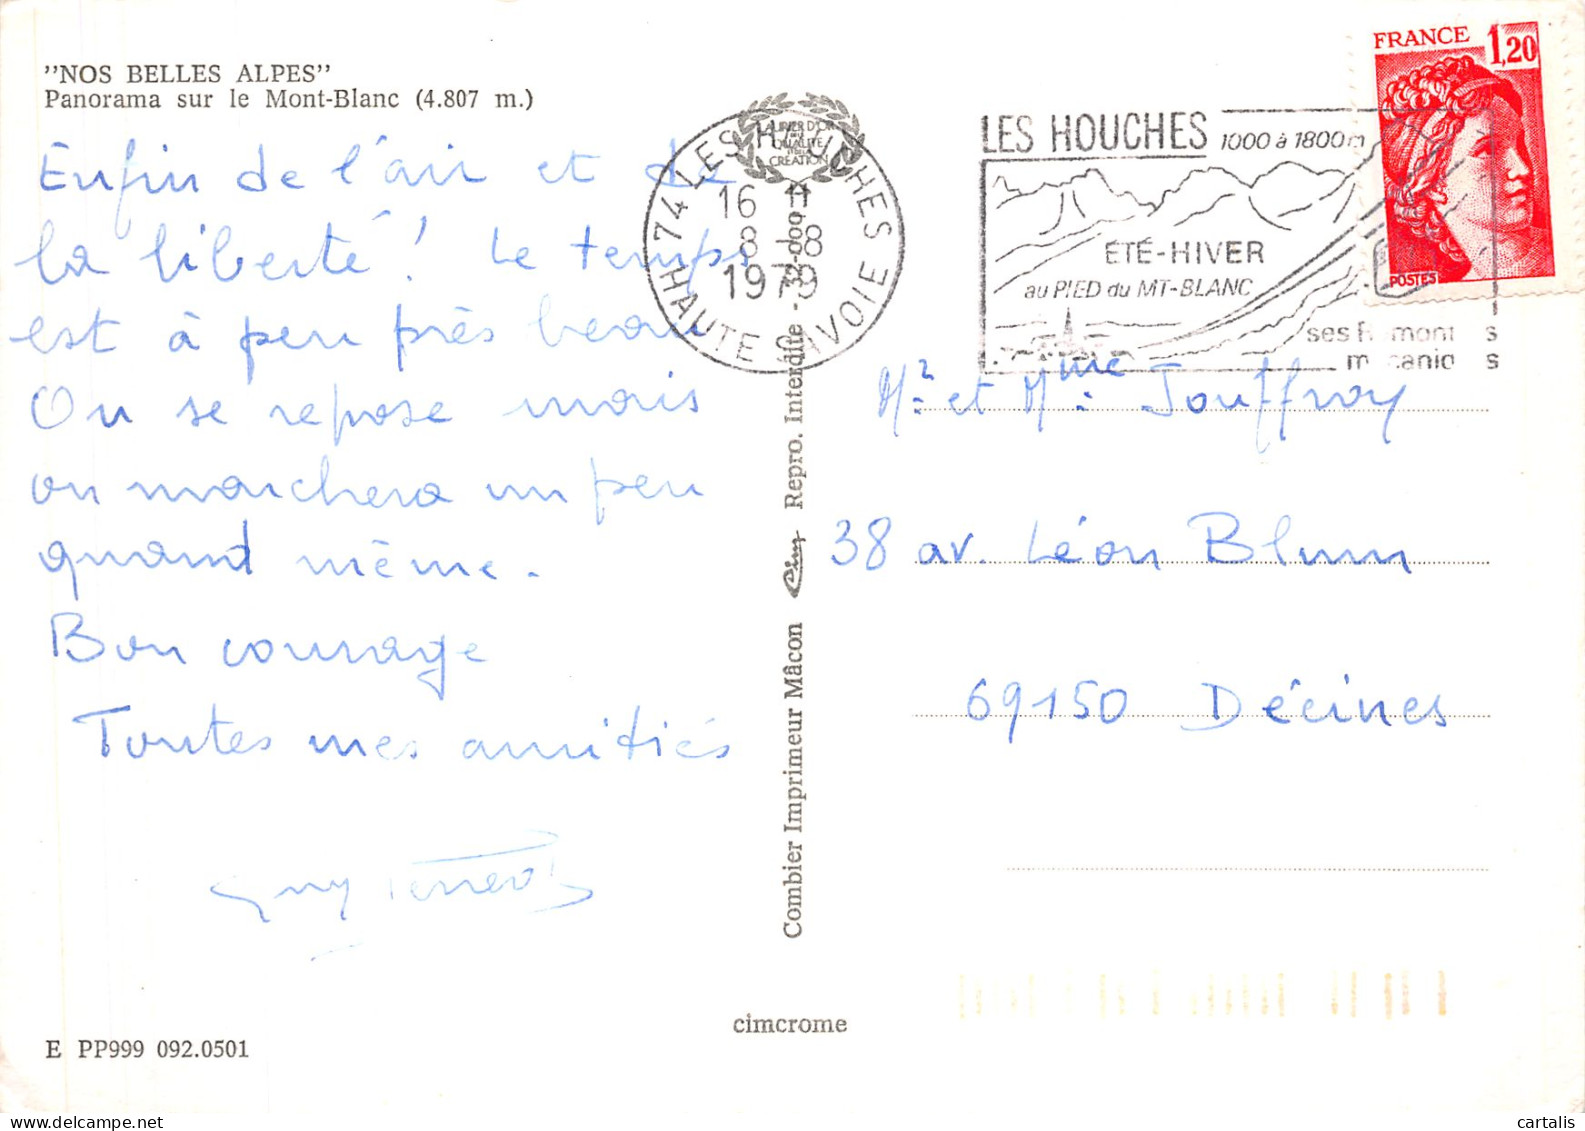 "NOS BELLES ALPES"
Panorama sur le Mont-Blanc (4.807 m.)
Enfin de l'air et de
la liberté ! Le temps
est à peu près beau
On se repose mais
on marchera un peu
quand même.
Bon courage
Toutes mes amitiés
Guy
E PP999 092.0501
cimcrome
Combier Imprimeur Mâcon Cim Repro. Interdite
CREATION
74 LES HOUCHES
16 H
8-8
1979
HAUTE SAVOIE
LES HOUCHES 1000 à 1800m
ÉTÉ-HIVER
au PIED du MT-BLANC
FRANCE 1,20
POSTES
Mr et Mme Jouffroy
38 av. Léon Blum
69150 Décines
cartalis